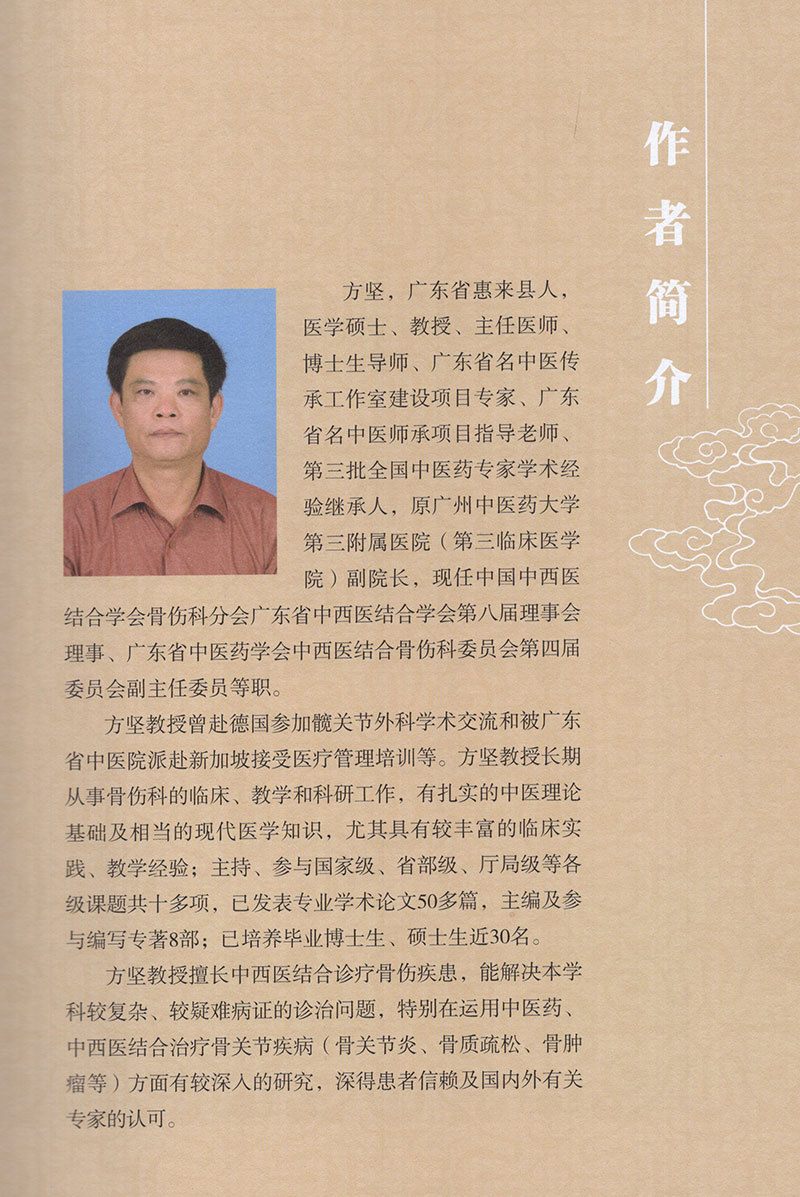 作者简介
方坚，广东省惠来县人，
医学硕士、教授、主任医师、
博士生导师、广东省名中医传
承工作室建设项目专家、广东
省名中医师承项目指导老师、
第三批全国中医药专家学术经
验继承人，原广州中医药大学
第三附属医院（第三临床医学
院）副院长，现任中国中西医
结合学会骨伤科分会广东省中西医结合学会第八届理事会
理事、广东省中医药学会中西医结合骨伤科委员会第四届
委员会副主任委员等职。
方坚教授曾赴德国参加髋关节外科学术交流和被广东
省中医院派赴新加坡接受医疗管理培训等。方坚教授长期
从事骨伤科的临床、教学和科研工作，有扎实的中医理论
基础及相当的现代医学知识，尤其具有较丰富的临床实
践、教学经验；主持、参与国家级、省部级、厅局级等各
级课题共十多项，已发表专业学术论文50多篇，主编及参
与编写专著8部；已培养毕业博士生、硕士生近30名。
方坚教授擅长中西医结合诊疗骨伤疾患，能解决本学
科较复杂、较疑难病证的诊治问题，特别在运用中医药、
中西医结合治疗骨关节疾病（骨关节炎、骨质疏松、骨肿
瘤等）方面有较深入的研究，深得患者信赖及国内外有关
专家的认可。